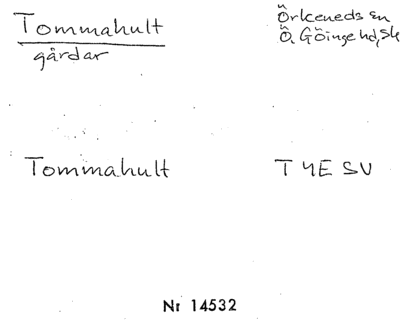 Tommahult
gårdar
Örkeneds sn
Ö. Göinge hd, Sk
Tommahult
T 4E SV
Nr 14532